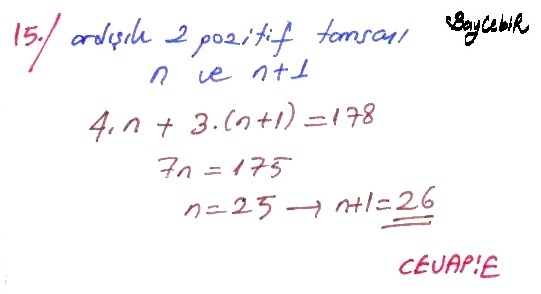 15./ ardışık 2 pozitif tamsayı
BayCebir
n ve n+1
4.n + 3.(n+1) = 178
7n = 175
n = 25 → n+1 = 26
CEVAP:E